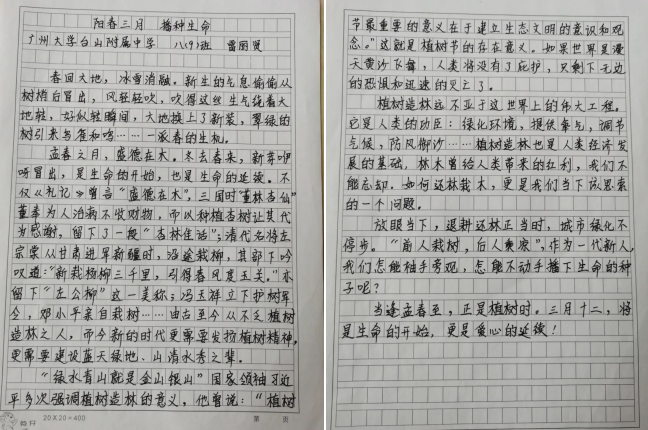 阳春三月 播种生命
广州大学台山附属中学 八(9)班 雷丽贤
春回大地，冰雪消融。新生的气息偷偷从
树梢白冒出，风轻轻吹，吹得这丝生气绕着大
地转，好似转瞬间，大地换上了新装，翠绿的
树引来鸟雀和鸣……一派春的生机。
孟春之月，盛德在木。冬去春来，新芽咿
呀冒出，是生命的开始，也是生命的延续。不
仅《礼记》曾言“盛德在木”，三国时“董林杏仙”
董奉为人治病不收财物，而以种植杏树让其代
为感谢，留下了一段“杏林佳话”；清代名将左
宗棠从甘肃进军新疆时，沿途栽柳，其部下吟
叹道：“新栽杨柳三千里，引得春风度玉关。”亦
留下“左公柳”这一美称；冯玉祥立下护树军
令，邓小平亲自栽树……由古至今从不乏植树
造林之人，而今新的时代更需要发扬植树精神，
更需要建设蓝天绿地、山清水秀之举。
“绿水青山就是金山银山”国家领袖习近
平多次强调植树造林的意义，他曾说：“植树
20×20=400
第 页
节最重要的意义在于建立生态文明的意识和观
念。”这就是植树节的存在意义。如果世界是漫
天黄沙飞舞，人类将没有了庇护，只剩下无边
的恐惧和迅速的灭亡了。
植树造林远不亚于这世界上的伟大工程。
它是人类的功臣：绿化环境，提供氧气，调节
气候，防风御沙……植树造林也是人类经济发
展的基础，林木曾给人类带来的红利，我们不
能忘却。如何还林栽木，更是我们当下该思索
的一个问题。
放眼当下，退耕还林正当时，城市绿化不
停步。“前人栽树，后人乘凉”，作为一代新人，
我们怎能袖手旁观，怎能不动手播下生命的种
子呢？
当逢孟春至，正是植树时。三月十二，将
是生命的开始，更是爱心的延续！